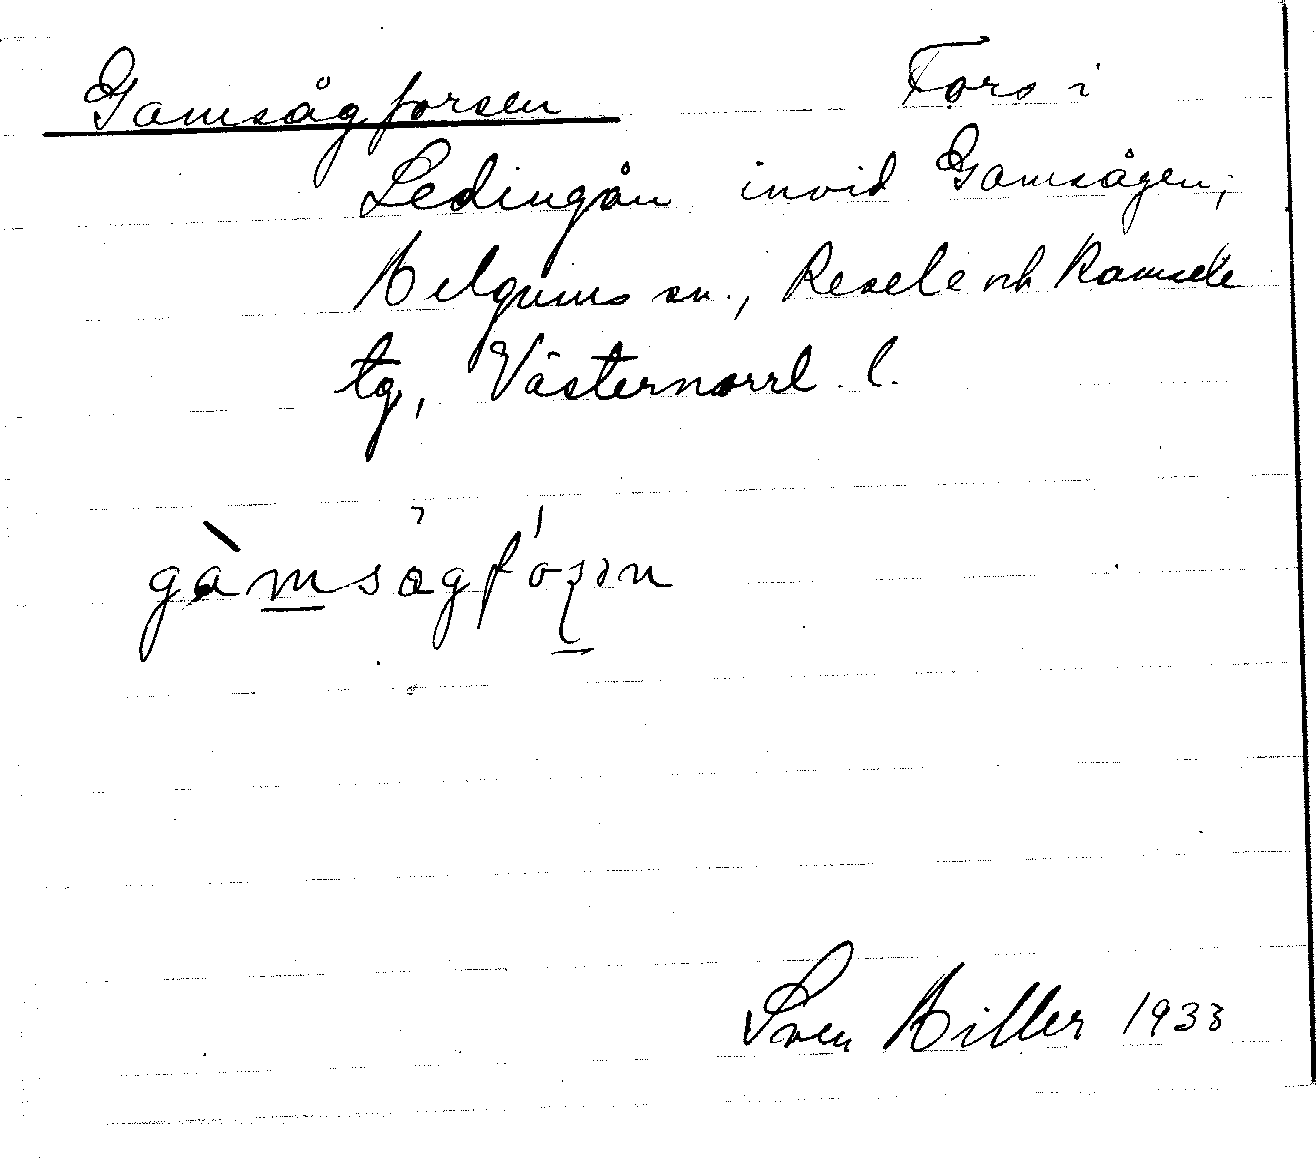 Gamsågforsen Fors i
Ledingån invid Gamsågen,
Helgums sn., Resele och Ramsele
tg, Västernorrl. l.
gàmsågfóʂən
Sven Hiller 1933